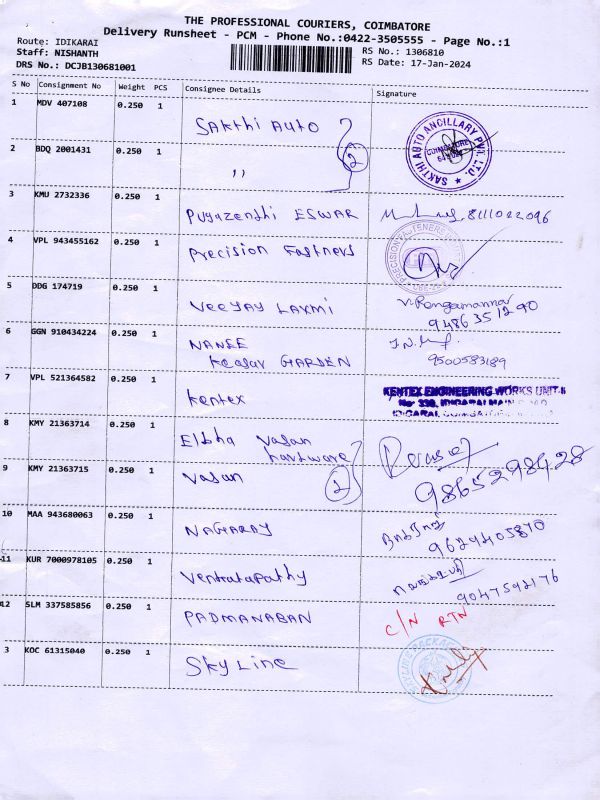 THE PROFESSIONAL COURIERS, COIMBATORE
Delivery Runsheet - PCM - Phone No.:0422-3505555 - Page No.:1
Route: IDIKARAI
Staff: NISHANTH
DRS No.: DCJB130681001
RS No.: 1306810
RS Date: 17-Jan-2024
S No Consignment No Weight PCS Consignee Details Signature
1 MDV 407108 0.250 1
SAKthi AUtO
SAKTHI AUTO ANCILLARY PVT. LTD.
COIMBATORE
2 BDQ 2001431 0.250 1
,, 2
3 KMU 2732336 0.250 1
Pugazendhi ESWAR 8111022096
4 VPL 943455162 0.250 1
Precision Fastners
5 DDG 174719 0.250 1
VEEJAY LAXMI V. Rengamannar
9486351290
6 GGN 910434224 0.250 1
NANEE
Keasav GARDEN 9500583189
7 VPL 521364582 0.250 1
Kentex
KENTEX ENGINEERING WORKS UNIT-II
8 KMY 21363714 0.250 1
Elbha Vasan
hardware
9 KMY 21363715 0.250 1
Vasan 2 9865298428
10 MAA 943680063 0.250 1
NAGARAJ 9629405870
11 KUR 7000978105 0.250 1
Venkatapathy 9047592176
12 SLM 337585856 0.250 1
PADMANABAN C/N RTN
3 KOC 61315040 0.250 1
SkyLine